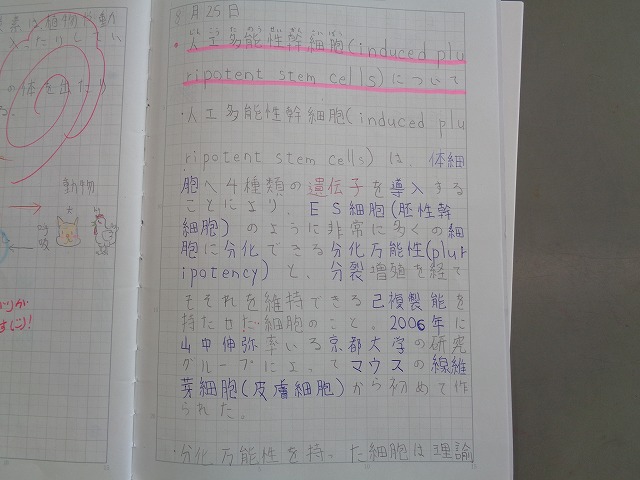 素は植物や動
入ったりしてい
の体を出たり
る。
動物
呼吸
8月25日
・人工多能性幹細胞(induced plu
ripotent stem cells)について
・人工多能性幹細胞(induced plu
ripotent stem cells)は、体細
胞へ4種類の遺伝子を導入する
ことにより、ES細胞(胚性幹
細胞)のように非常に多くの細
胞に分化できる分化万能性(plur
ipotency)と、分裂増殖を経て
もそれを維持できる己複製能を
持たせた細胞のこと。2006年に
山中伸弥率いる京都大学の研究
グループによってマウスの線維
芽細胞(皮膚細胞)から初めて作
られた。
・分化万能性を持った細胞は理論